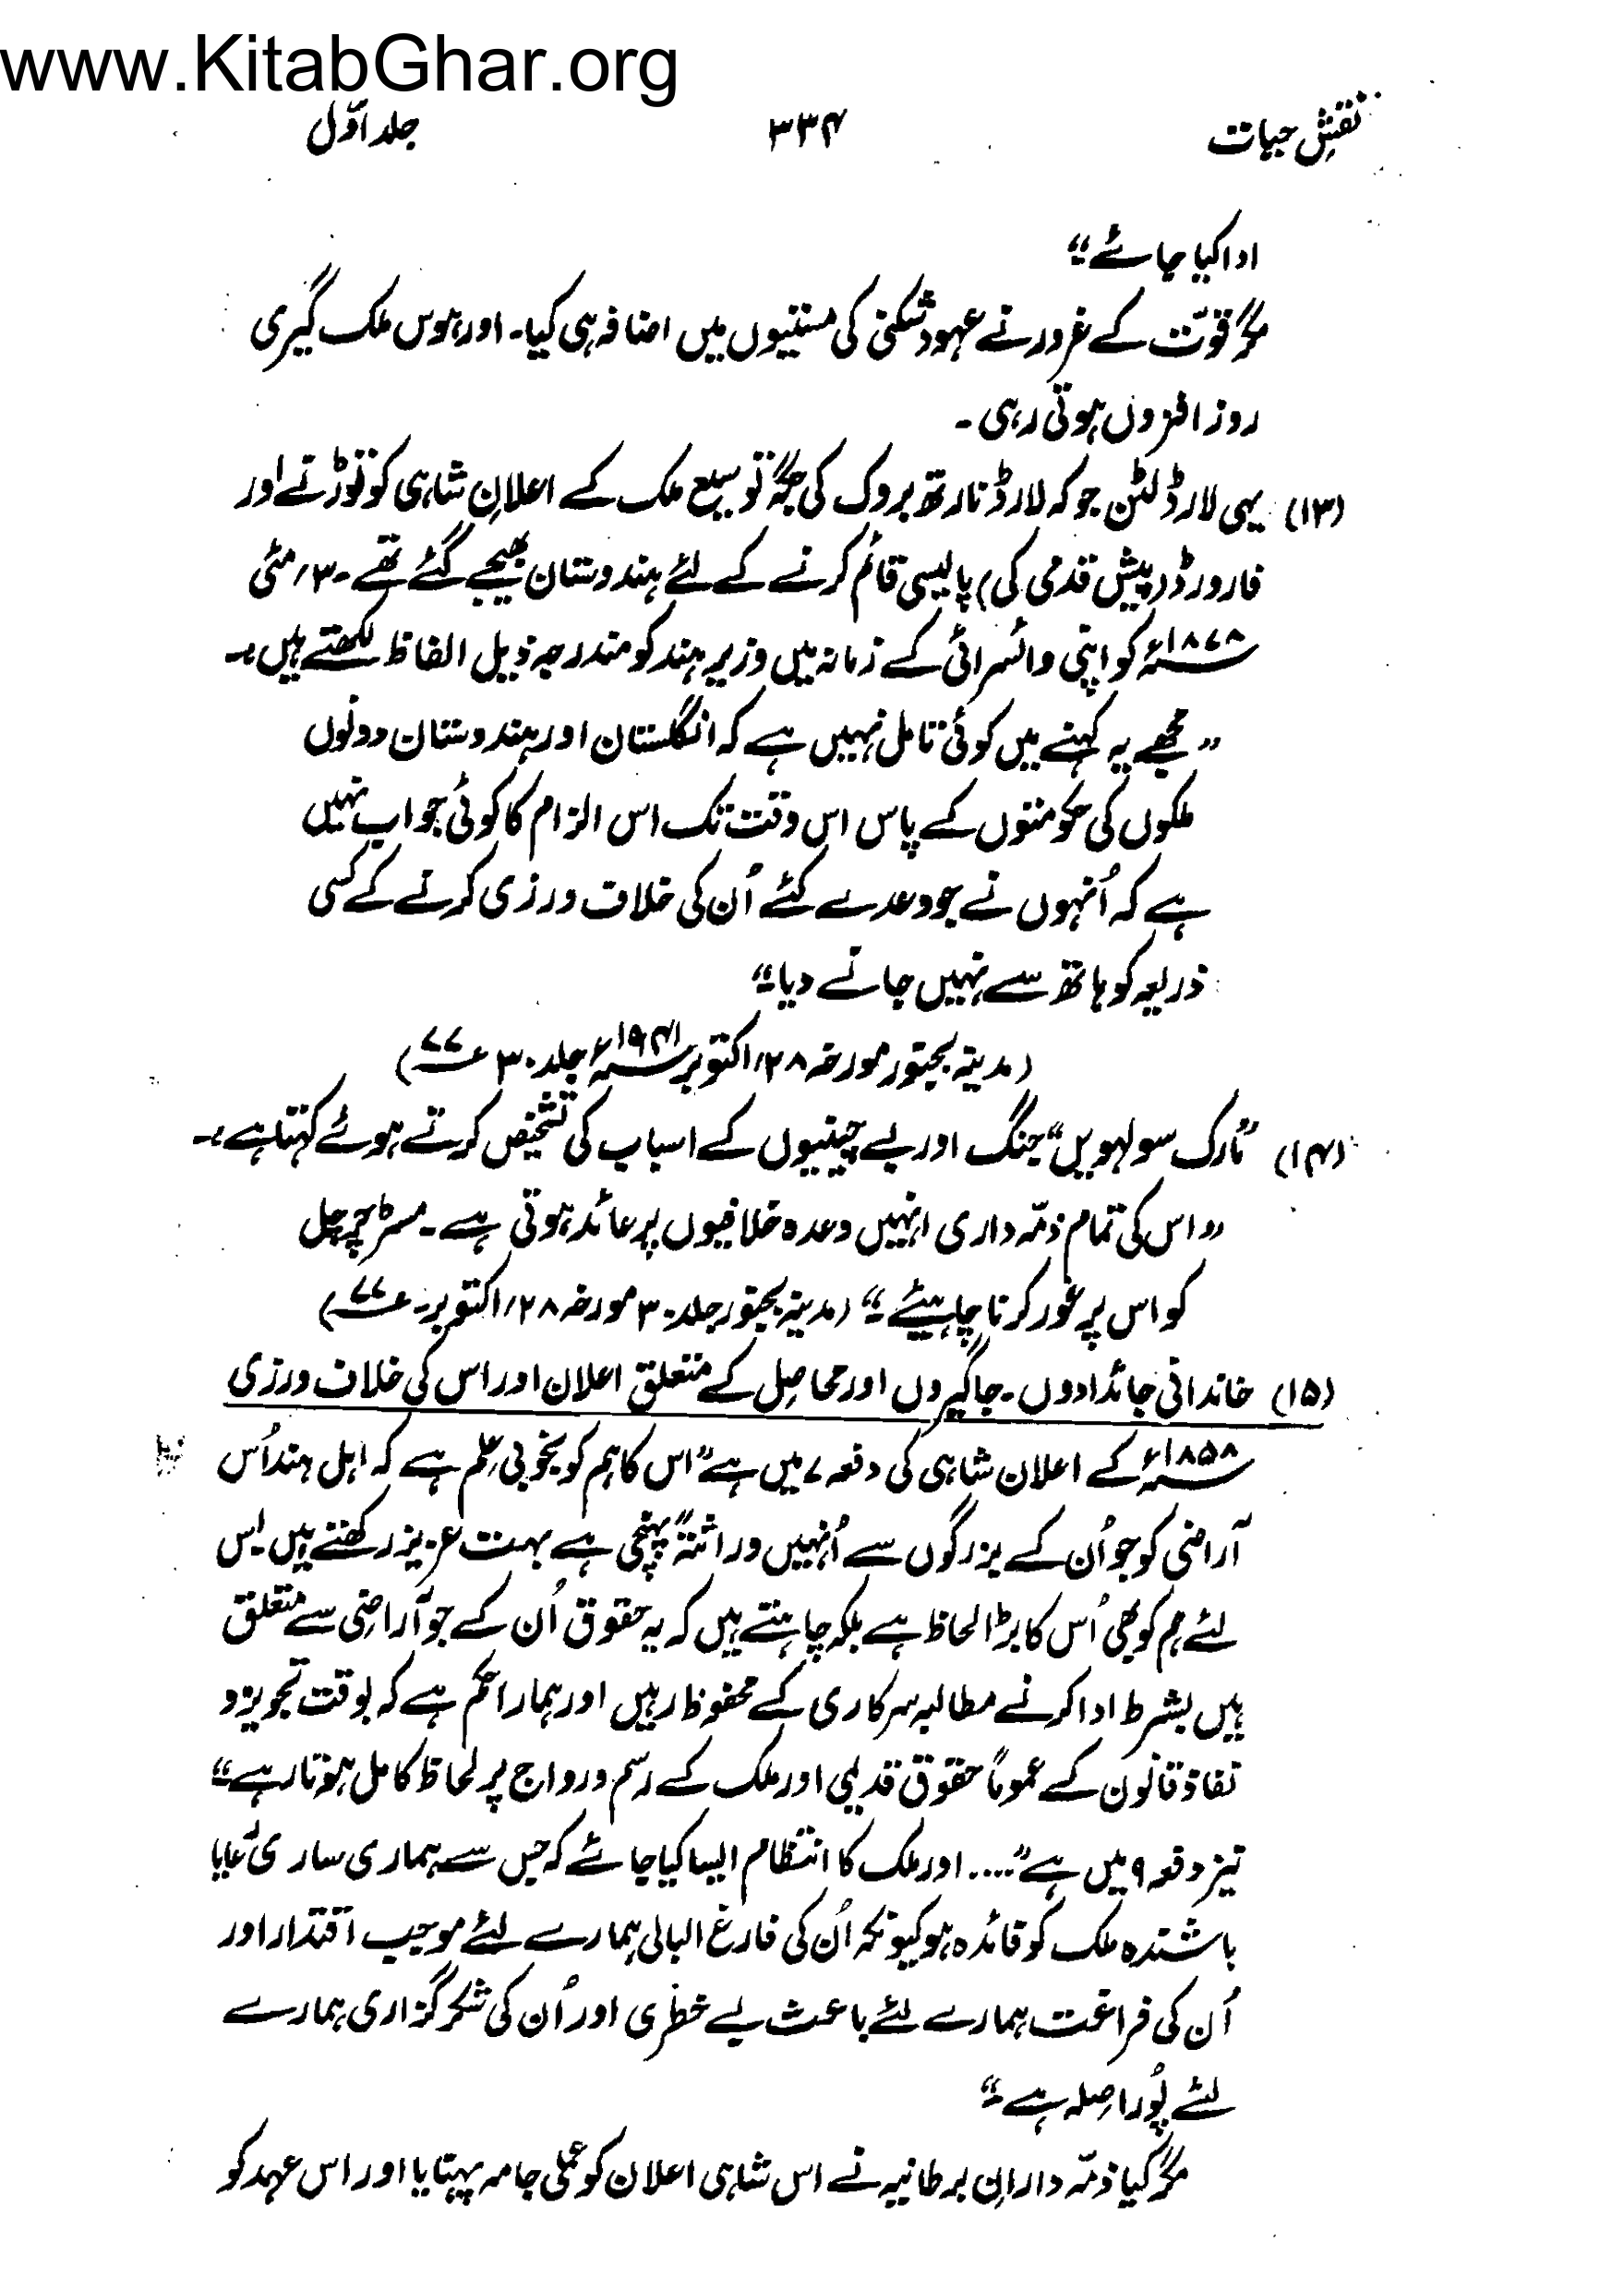 www.KitabGhar.org
نقشِ حیات ۳۳۴ جلد اوّل
ادا کیا جائے"
مگر قوّت کے غرور نے عہود شکنی کی مستیوں میں اضافہ ہی کیا۔ اور ہوس ملک گیری
روز افزوں ہوتی رہی۔
(۱۳) یہی لارڈ لٹن جو کہ لارڈ نارتھ بروک کی جگہ توسیع ملک کے اعلانِ شاہی کو توڑنے اور
فارورڈ (پیش قدمی کی) پالیسی قائم کرنے کے لئے ہندوستان بھیجے گئے تھے۔ ۳؍ مئی
۱۸۷۸ء کو اپنی وائسرائی کے زمانہ میں وزیر ہند کو مندرجہ ذیل الفاظ لکھتے ہیں:۔
"مجھے یہ کہنے میں کوئی تامل نہیں ہے کہ انگلستان اور ہندوستان دونوں
ملکوں کی حکومتوں کے پاس اس وقت تک اس الزام کا کوئی جواب نہیں
ہے کہ اُنہوں نے جو وعدے کئے اُن کی خلاف ورزی کرنے کے کسی
ذریعہ کو ہاتھ سے نہیں جانے دیا۔"
(مدینہ بجنور مورخہ ۲۸؍ اکتوبر ۱۹۴۱ء جلد ۳۰ ع۷۷)
(۱۴) "مارک سولہویں" جنگ اور بے چینیوں کے اسباب کی تشخیص کرتے ہوئے کہتا ہے:۔
"اس کی تمام ذمّہ داری انہیں وعدہ خلافیوں پر عائد ہوتی ہے۔ مسٹر چرچل
کو اس پر غور کرنا چاہیئے۔" (مدینہ بجنور جلد ۳۰ مورخہ ۲۸؍ اکتوبر۔ ع۷۷)
(۱۵) خاندانی جائدادوں۔ جاگیروں اور محاصِل کے متعلق اعلان اور اس کی خلاف ورزی
۱۸۵۸ء کے اعلان شاہی کی دفعہ ۷ میں ہے "اس کا ہم کو بخوبی عِلم ہے کہ اہل ہند اُس
آراضی کو جو اُن کے بزرگوں سے اُنہیں وراثتہً پہنچی ہے بہت عزیز رکھتے ہیں اس
لئے ہم کو بھی اُس کا بڑا لحاظ ہے بلکہ چاہتے ہیں کہ یہ حقوق اُن کے جو آراضِی سے متعلق
ہیں بشرط ادا کرنے مطالبہ سرکاری کے محفوظ رہیں اور ہمارا حکم ہے کہ بوقت تجویز و
نفاذ قانون کے عموماً حقوق قدیمی اور ملک کے رسم و رواج پر لحاظ کامل ہوتا رہے"
نیز دفعہ ۹ میں ہے ".... اور ملک کا انتظام ایسا کیا جائے کہ جس سے ہماری ساری رُعایا
باشندہ ملک کو فائدہ ہو کیونکہ اُن کی فارغ البالی ہمارے لئے موجب اقتدار اور
اُن کی فراغت ہمارے لئے باعث بے خطری اور اُن کی شکر گزاری ہمارے
لئے پُورا صِلہ ہے۔"
مگر کیا ذمّہ دارانِ برطانیہ نے اس شاہی اعلان کو عملی جامہ پہنایا اور اس عہد کو